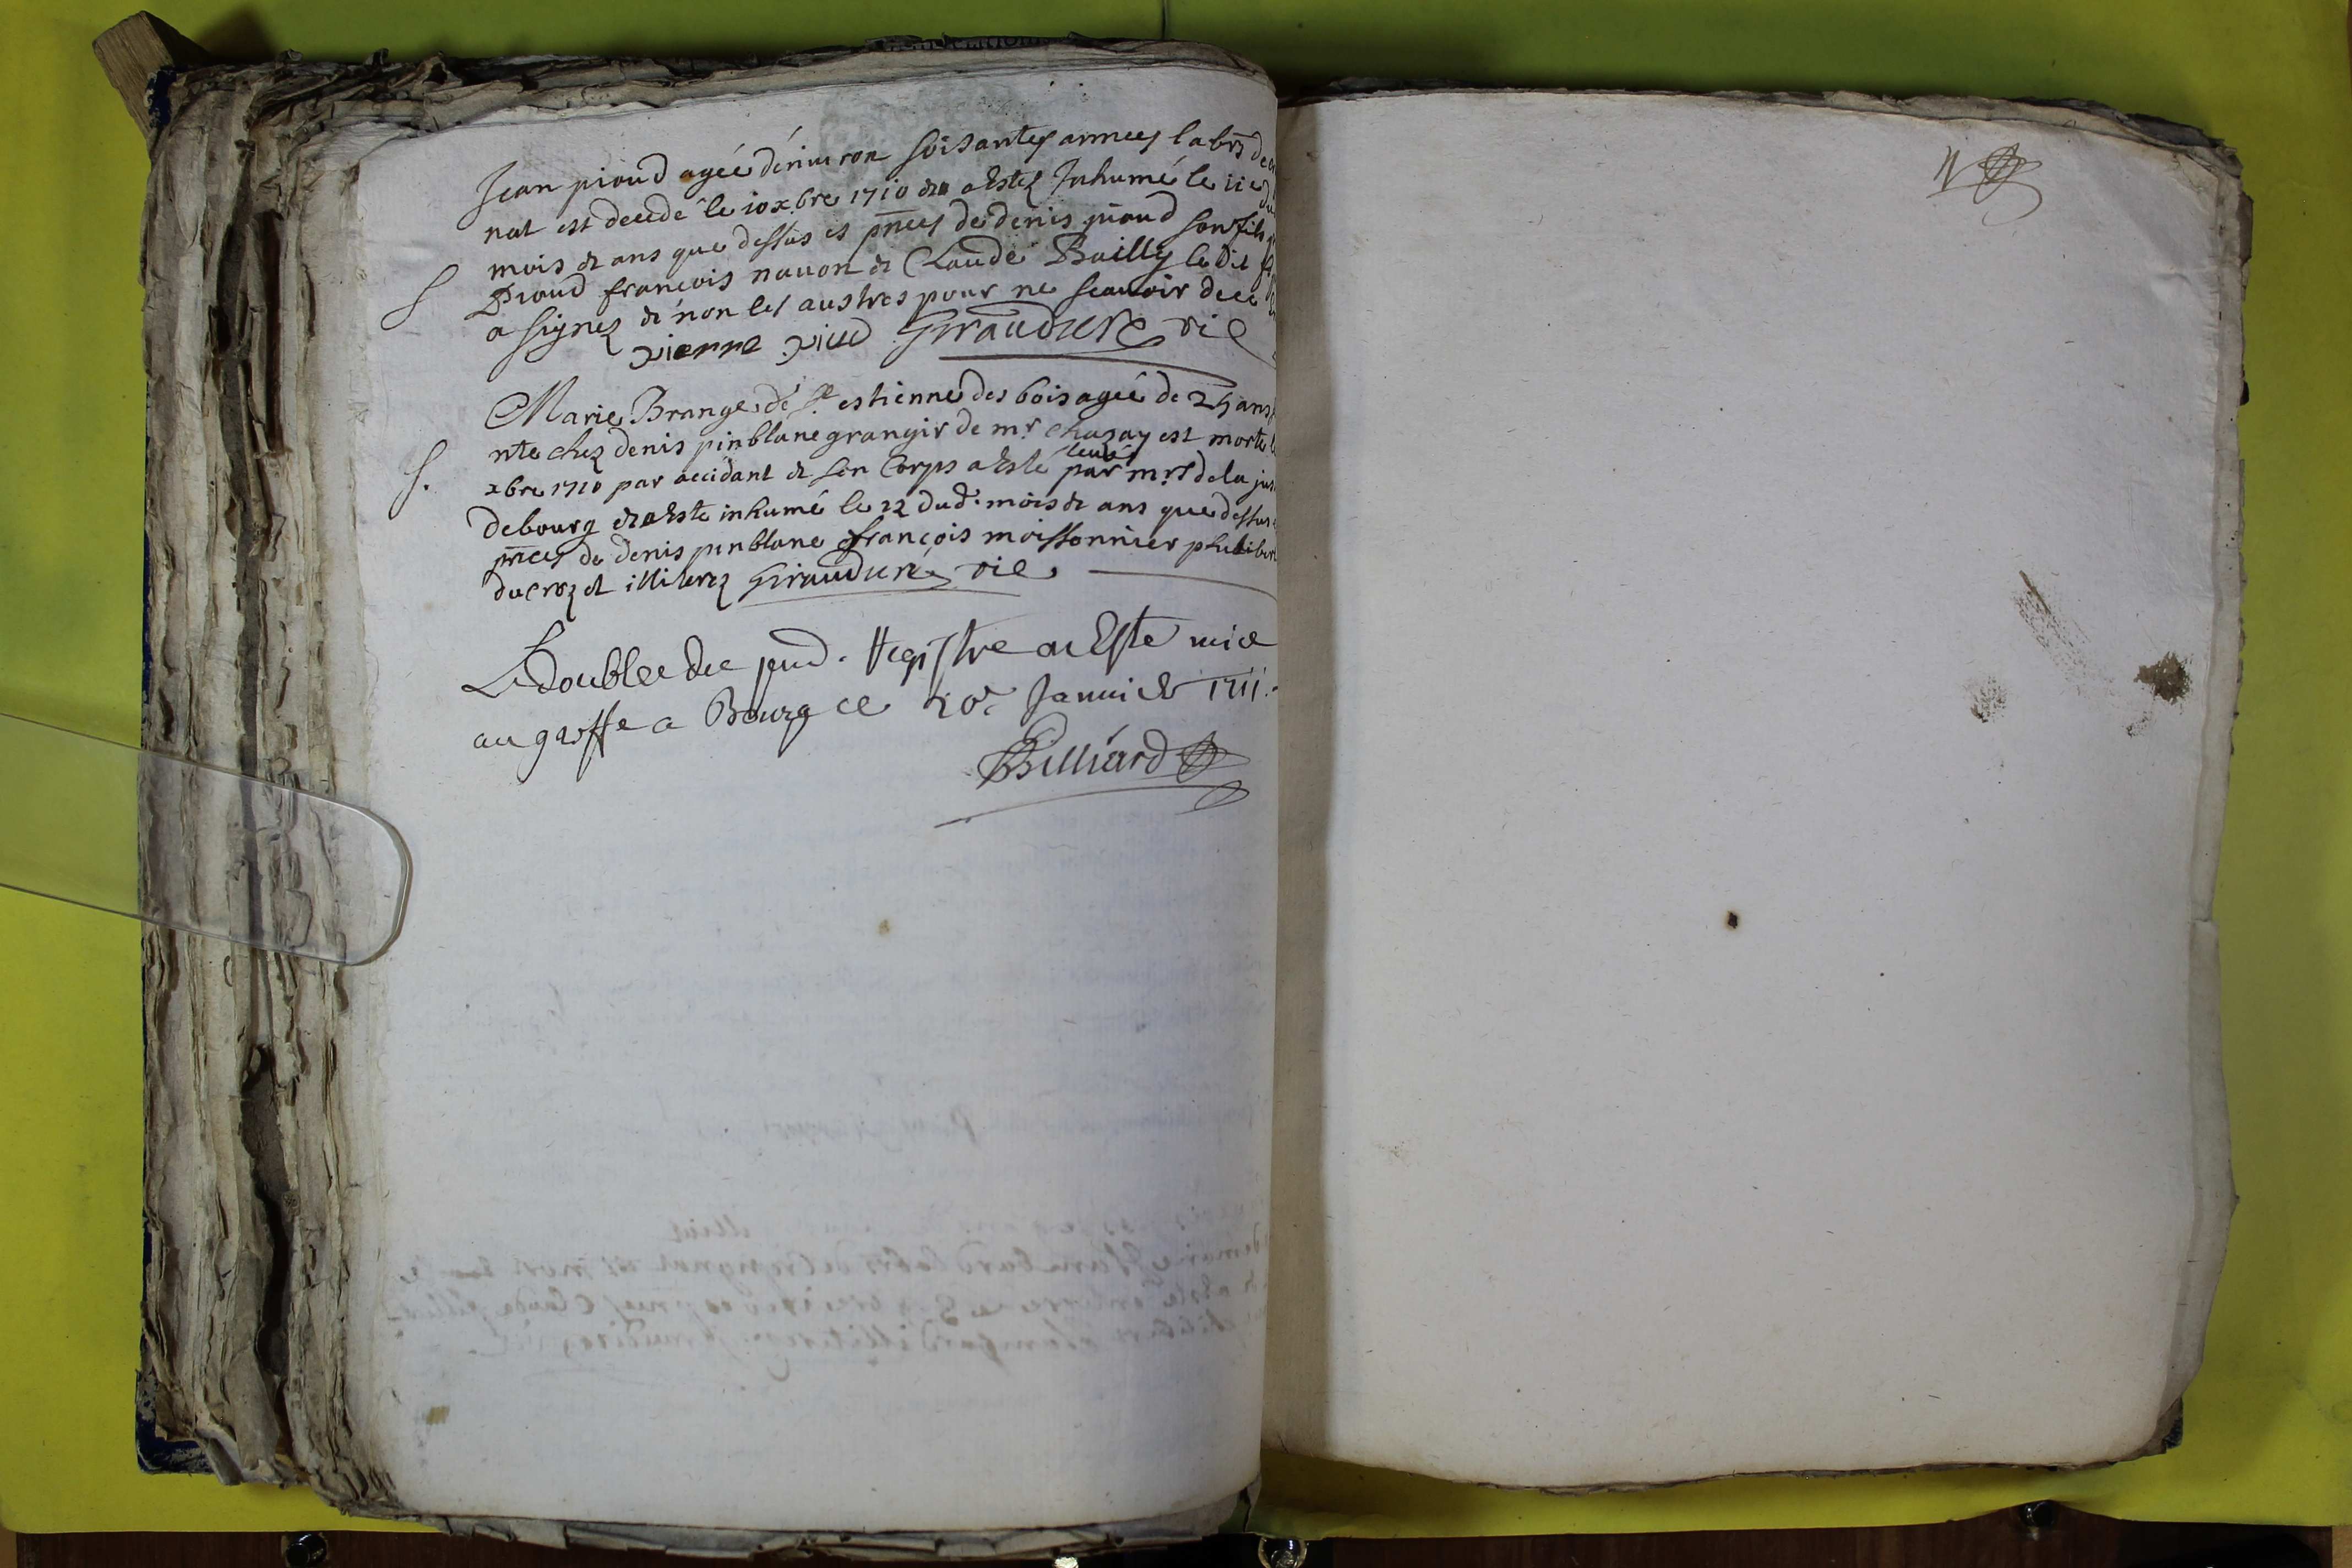 Jean pioud agée d'énuiron soisantes annees labrs de
nat est decede le 10 xbre 1710 & a estez Inhumé le 11e du
mois & ans que dessus es pñces de denis pioud son fils
Pioud francois nauon & Claude Bailly le dit
a signez & non les austres pour ne scauoir de ce
pierre piud Giraud cure vic
S
Marie Brange de st estienne des bois agée de 25 ans
nte chez denis pinblanc grangir de mr chazay est morte
xbre 1710 par accidant & son Corps a esté leué par mrs de la jus
S.
de bourg & a esté inhumé le 12 dud. mois & ans que dessus
pñces de denis pinblanc françois moissonnier philibert
du croz & illiterez Giraud cure vic
Le double du pnd. Registre a Este mis
au greffe a Bourg ce 20e Januier 1711.
Billiard